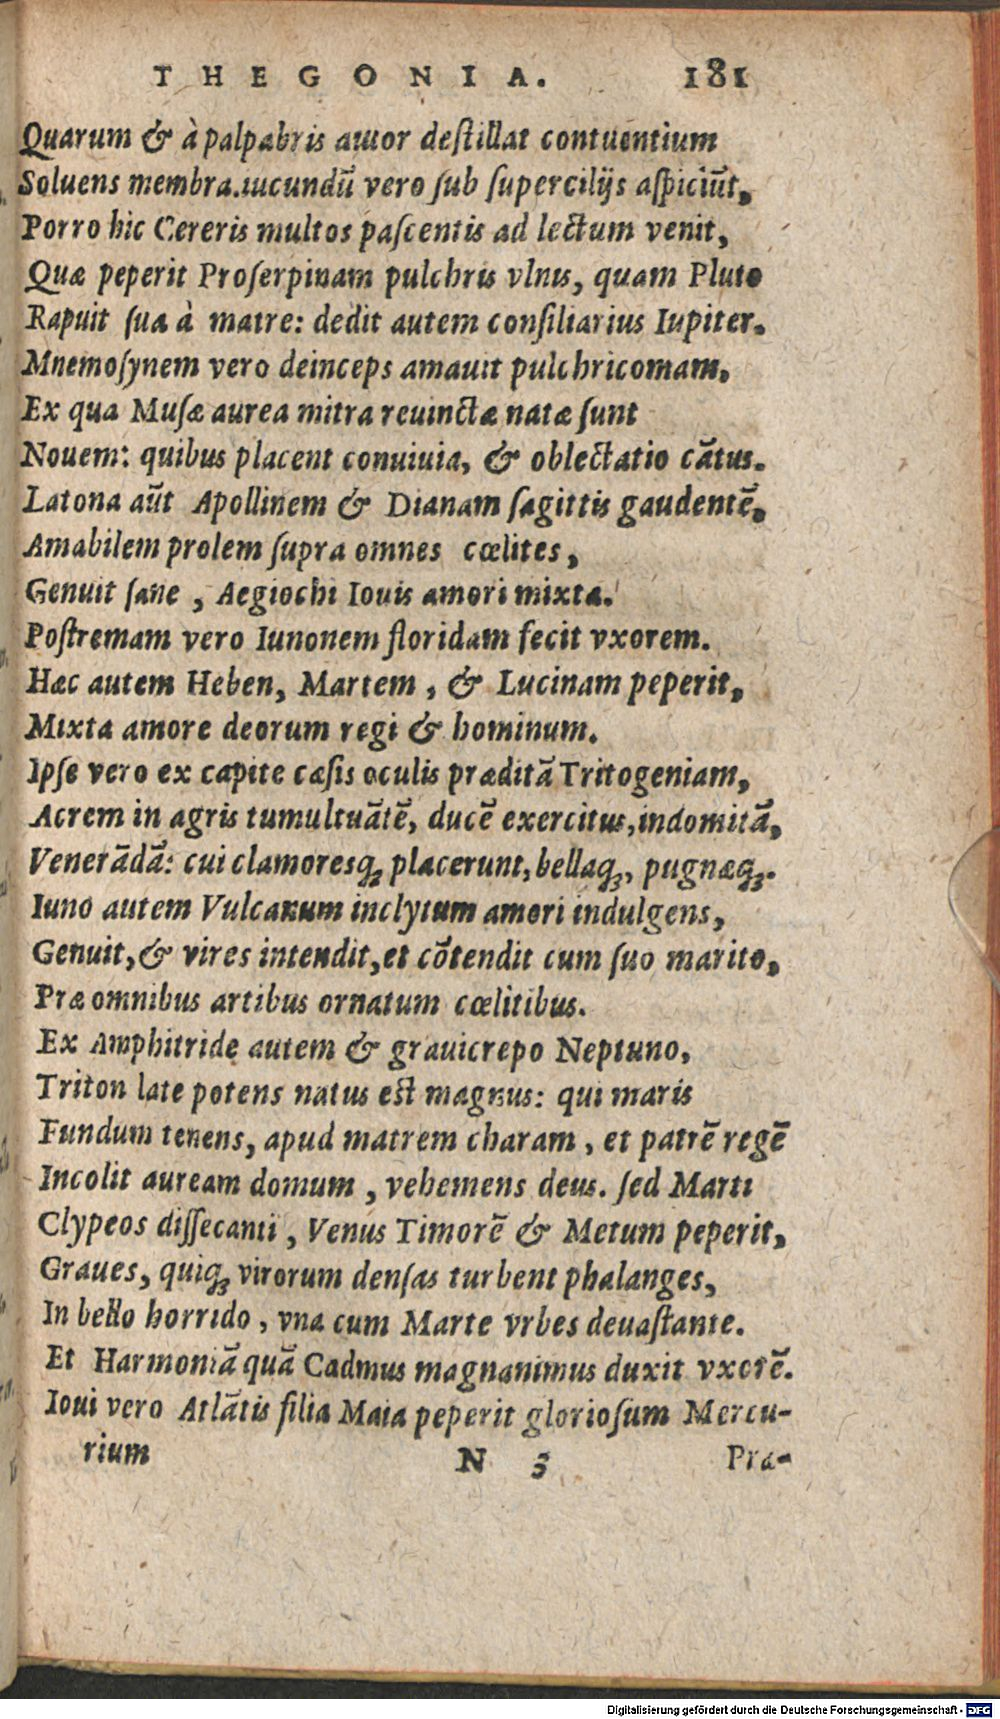 THEGONIA. 181
Quarum & à palpabris amor deſtillat contuentium
Soluens membra.iucundū vero ſub ſupercilijs aſpiciūt,
Porro hic Cereris multos paſcentis ad lectum venit,
Quæ peperit Proſerpinam pulchris vlnis, quam Pluto
Rapuit ſua à matre: dedit autem conſiliarius Iupiter.
Mnemoſynem vero deinceps amauit pulchricomam.
Ex qua Muſæ aurea mitra reuinctæ natæ ſunt
Nouem: quibus placent conuiuia, & oblectatio cātus.
Latona aūt Apollinem & Dianam ſagittis gaudentē,
Amabilem prolem ſupra omnes cœlites,
Genuit ſane, Aegiochi Iouis amori mixta.
Poſtremam vero Iunonem floridam fecit vxorem.
Hæc autem Heben, Martem, & Lucinam peperit,
Mixta amore deorum regi & hominum.
Ipſe vero ex capite cæſis oculis præditā Tritogeniam,
Acrem in agris tumultuātē, ducē exercitus,indomitā,
Venerādā: cui clamoresq; placerunt, bellaq;, pugnæq;.
Iuno autem Vulcanum inclytum amori indulgens,
Genuit,& vires intendit,et cōtendit cum ſuo marito,
Præ omnibus artibus ornatum cœlitibus.
Ex Amphitride autem & grauicrepo Neptuno,
Triton late potens natus eſt magnus: qui maris
Fundum tenens, apud matrem charam, et patrē regē
Incolit auream domum, vehemens deus. ſed Marti
Clypeos diſſecanti, Venus Timorē & Metum peperit,
Graues, quiq; virorum denſas turbent phalanges,
In bello horrido, vna cum Marte vrbes deuaſtante.
Et Harmoniā quā Cadmus magnanimus duxit vxorē.
Ioui vero Atlātis filia Maia peperit glorioſum Mercu-
rium N 3 Præ-
Digitalisierung gefördert durch die Deutsche Forschungsgemeinschaft - DFG